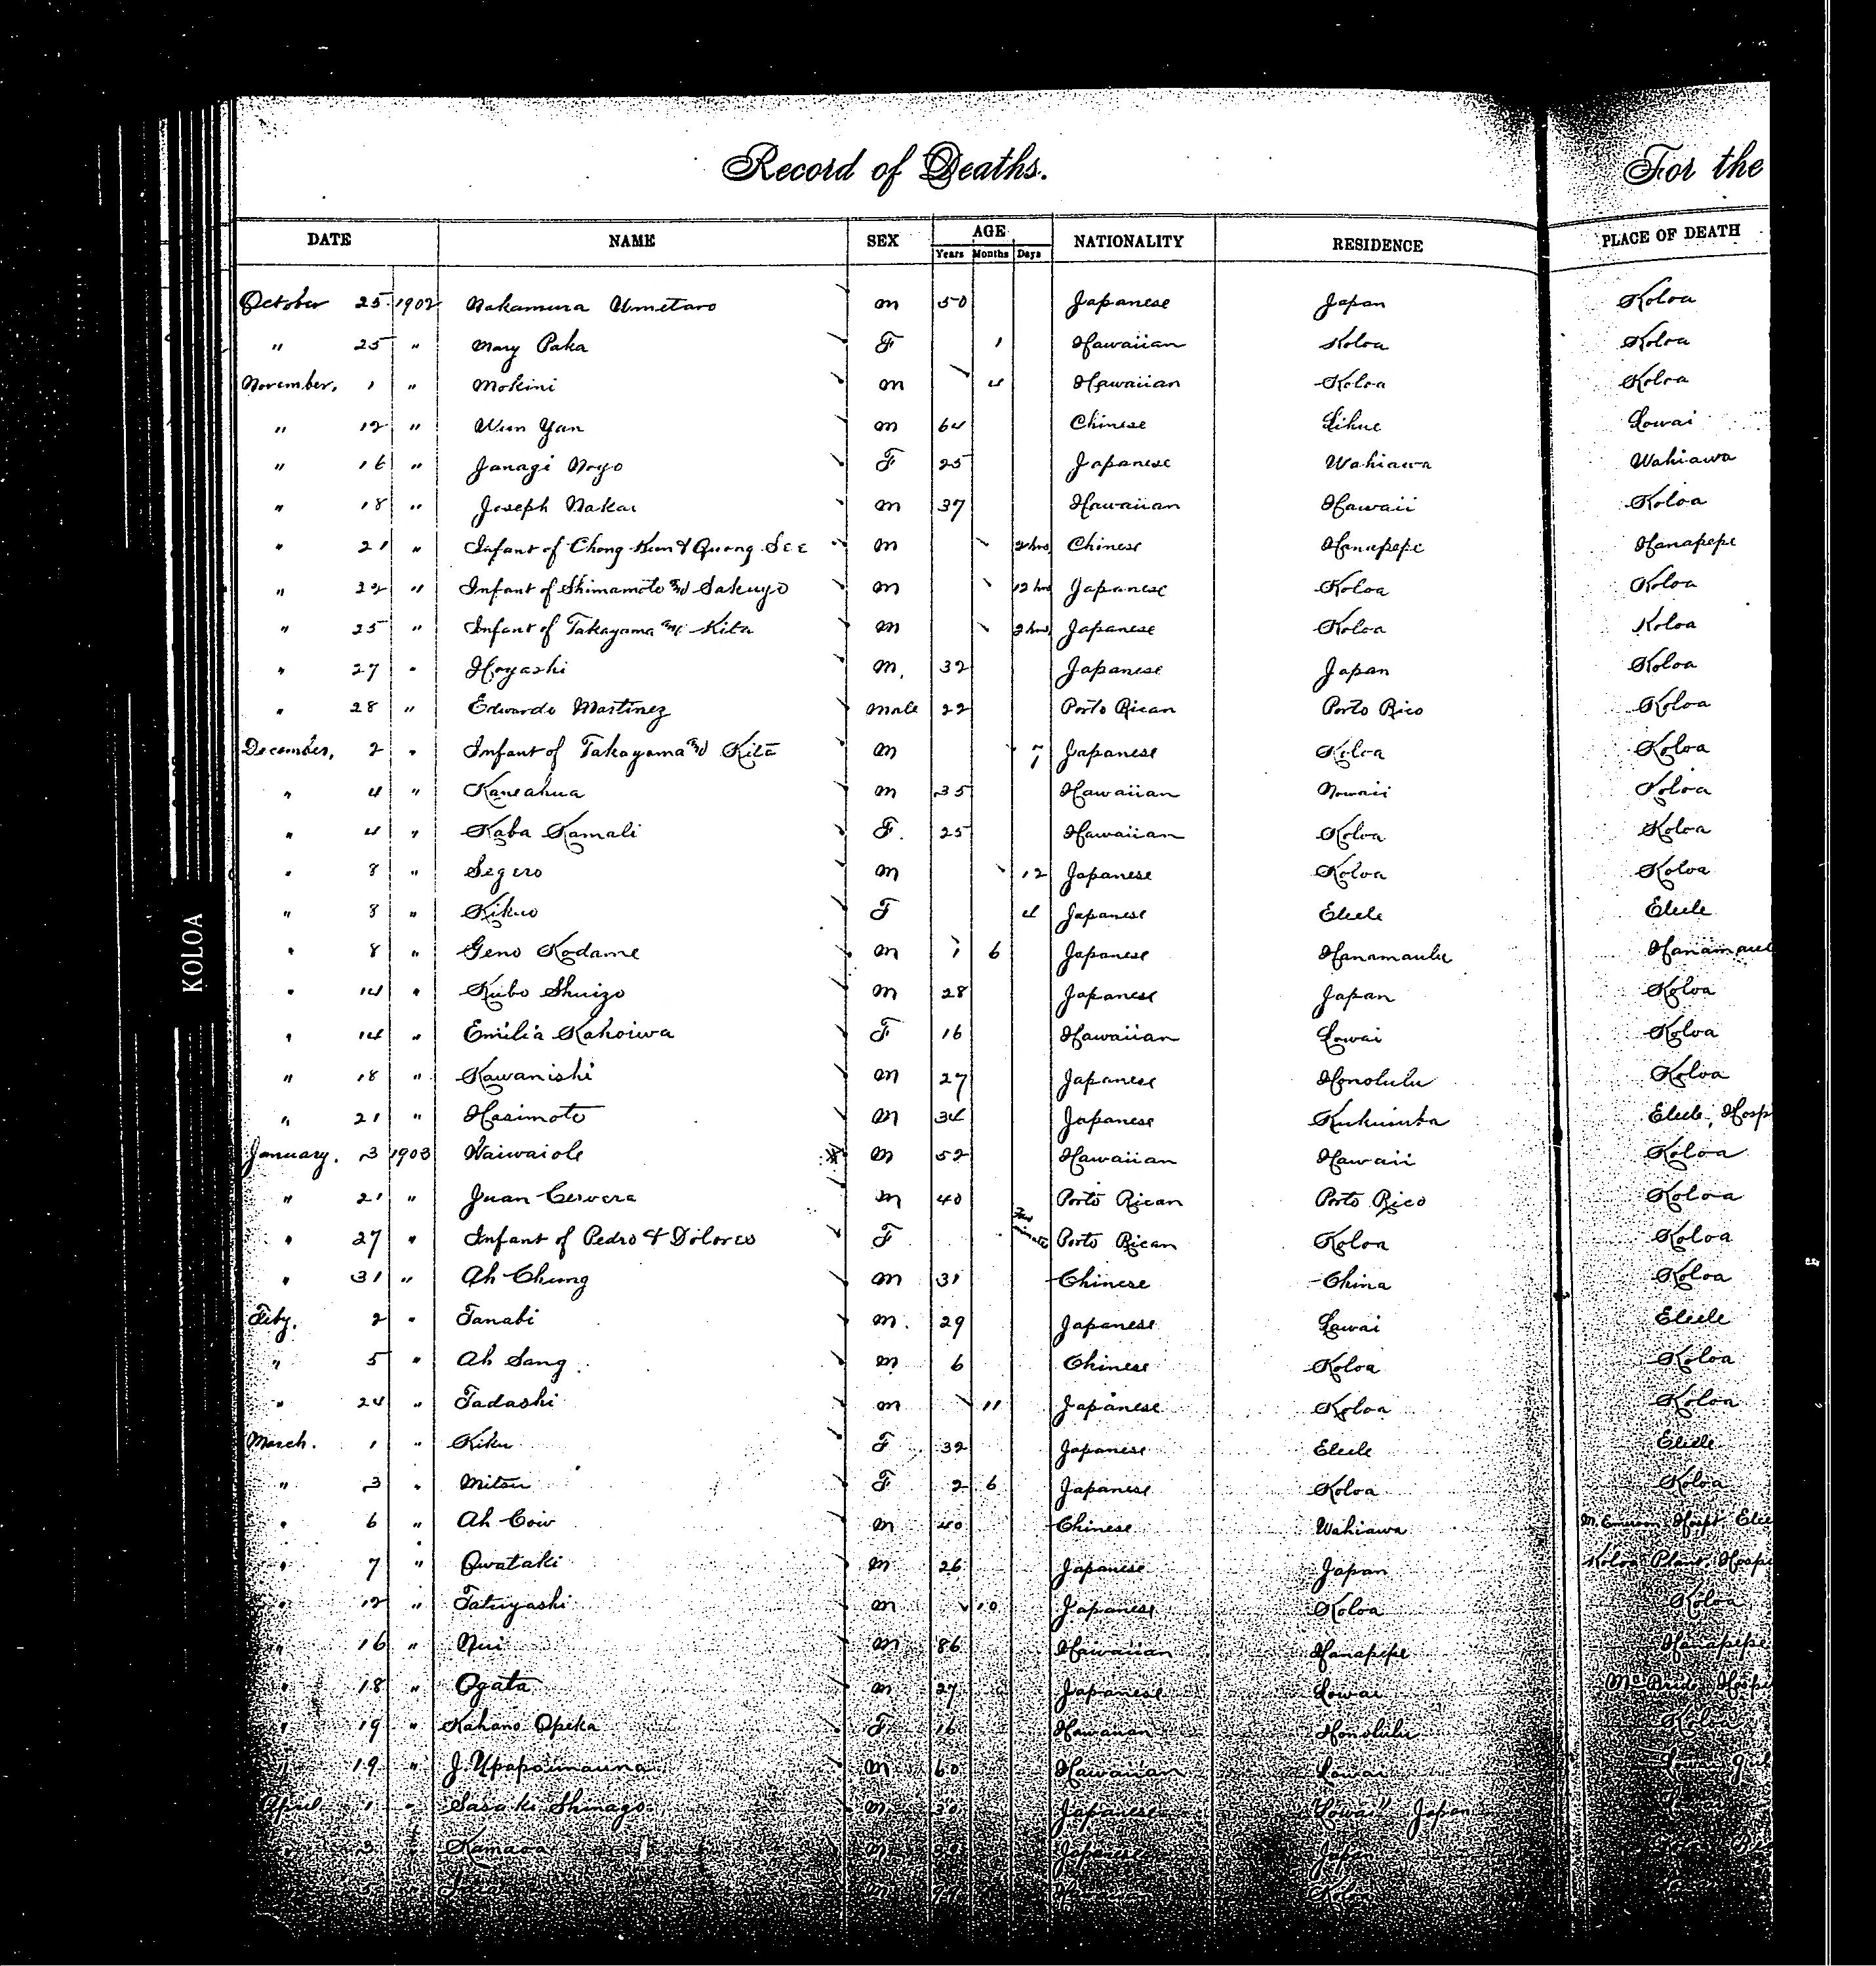 Record of Deaths.
For the
DATE NAME SEX AGE NATIONALITY RESIDENCE PLACE OF DEATH
Years Months Days
October 25 1902 Nakamura Umetaro m 50 Japanese Japan Koloa
" 25 " Mary Paka F 1 Hawaiian Koloa Koloa
November, 1 " Mokini m 4 Hawaiian Koloa Koloa
" 12 " Wun Yan m 64 Chinese Lihue Lowai
" 16 " Janagi Noyo F 25 Japanese Wahiawa Wahiawa
" 18 " Joseph Nakai m 37 Hawaiian Hawaii Koloa
" 21 " Infant of Chong Kun & Quong See m 2 hrs Chinese Hanapepe Hanapepe
" 22 " Infant of Shimamoto and Sakuyo m 12 hrs Japanese Koloa Koloa
" 25 " Infant of Takayama and Kita m 2 hrs Japanese Koloa Koloa
" 27 " Hoyashi m. 32 Japanese Japan Koloa
" 28 " Edwardo Martinez male 22 Porto Rican Porto Rico Koloa
December, 2 " Infant of Takayama and Kita m 7 Japanese Koloa Koloa
" 4 " Kaneahua m 35 Hawaiian Koloa
" 4 " Kaba Kamali F. 25 Hawaiian Koloa Koloa
" 8 " Segero m 12 Japanese Koloa Koloa
" 8 " Kikuo F 4 Japanese Eleele Eleele
" 8 " Geno Kodame m 1 6 Japanese Hanamaulu Hanamaul
" 14 " Kubo Shuizo m 28 Japanese Japan Koloa
" 14 " Emilia Kahoiwa F 16 Hawaiian Lowai Koloa
" 18 " Kawanishi m 27 Japanese Honolulu Koloa
" 21 " Hasimoto m 34 Japanese Eleele, Hosp
January. 3 1903 Waiwaiole m 52 Hawaiian Hawaii Koloa
" 21 " Juan Cervera m 40 Porto Rican Porto Rico Koloa
" 27 " Infant of Pedro & Dolores F Porto Rican Koloa Koloa
" 31 " Ah Chung m 31 Chinese China Koloa
Feby. 2 " Tanabi m. 29 Japanese Lawai Eleele
" 5 " Ah Sang m 6 Chinese Koloa Koloa
" 24 " Tadashi m 11 Japanese Koloa Koloa
March. 1 " Kiku F 32 Japanese Eleele Eleele
" 3 " Mitsu F 2 6 Japanese Koloa Koloa
" 6 " Ah Cow m 40 Chinese Wahiawa Hospt Elee
" 7 " Owataki m 26 Japanese Japan Koloa Plant. Hospi
" 12 " Tatuyashi m 10 Japanese Koloa Koloa
" 16 " Nui m 86 Hawaiian Hanapepe Hanapepe
" 18 " Ogata m 27 Japanese Lowai McBride Hospi
" 19 " Kahano Opeka F 16 Hawaiian Honolulu Koloa
" 19 " J. Upapaimauna m 60 Hawaiian Lowai
April 1 " Sasaki Shinago m 30 Japanese "Lowai" Japan
" 3 Kamaoa m Japanese Japan
m Koloa
KOLOA